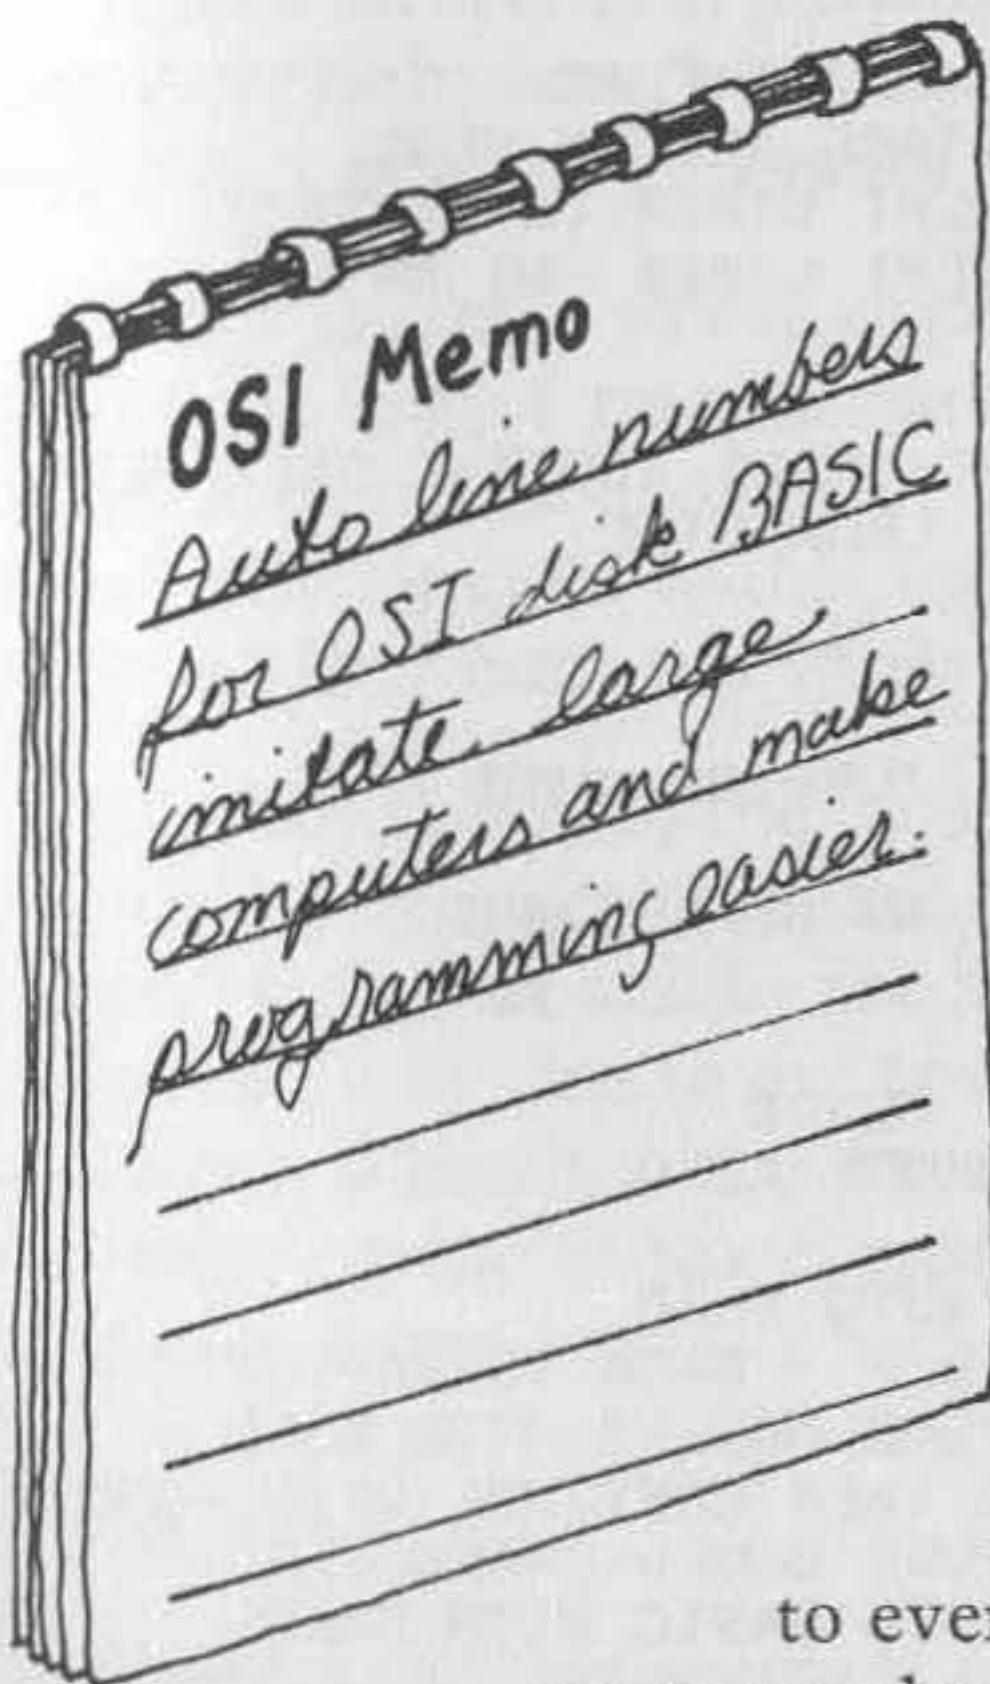 OSI Memo
Auto line numbers
for OSI disk BASIC
imitate large
computers and make
programming easier.
to ever